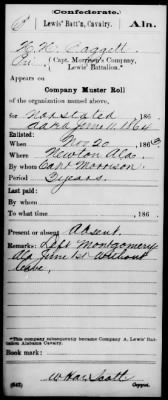 Confederate.
Lewis' Batt'n, Cavalry. Ala.
Pvt., Capt. Morrison's Company,
Lewis' Battalion.*
Appears on
Company Muster Roll
of the organization named above,
for Not stated, 186
dated June 11, 1864
Enlisted:
When Nov 20, 186
Where Newton Ala.
By whom Capt Morrison
Period 3 years.
Last paid:
By whom
To what time , 186
Present or absent Absent.
Remarks: Left Montgomery
Ala June 1st without
leave.
*This company subsequently became Company A, Lewis' Battalion Alabama Cavalry.
Book mark:
Scott
(642) Copyist.